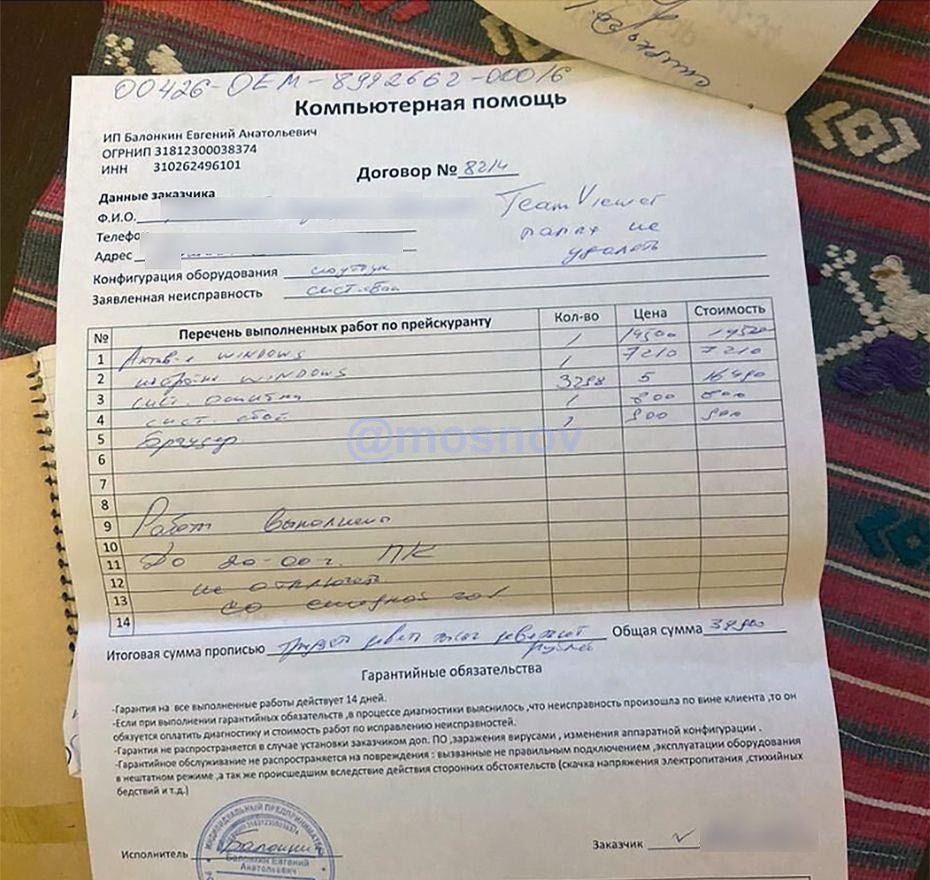 00426-OEM-8992662-00016
Компьютерная помощь
ИП Балонкин Евгений Анатольевич
ОГРНИП 31812300038374
ИНН 310262496101
Договор № 8214
Данные заказчика
Ф.И.О.
TeamViewer
папки не
удалять
Телефо
Адрес
Конфигурация оборудования ноутбук
Заявленная неисправность сист. сбой
№ Перечень выполненных работ по прейскуранту Кол-во Цена Стоимость
1 Актив-я WINDOWS 1 14500 14500
2 WINDOWS 1 7210 7210
3 сист. ошибки 3298 5 16490
4 сист. сбой 1 800 800
5 браузер 1 900 900
@mosnov
6
7
8
9 Работы выполнены
10
11 До 20-00 ПК
12 не отключать
13 со
14
Итоговая сумма прописью рублей Общая сумма
Гарантийные обязательства
-Гарантия на все выполненные работы действует 14 дней.
-Если при выполнении гарантийных обязательств ,в процессе диагностики выяснилось ,что неисправность произошла по вине клиента ,то он
обязуется оплатить диагностику и стоимость работ по исправлению неисправностей.
-Гарантия не распространяется в случае установки заказчиком доп. ПО ,заражения вирусами , изменения аппаратной конфигурации .
-Гарантийное обслуживание не распространяется на повреждения : вызванные не правильным подключением ,эксплуатации оборудования
в нештатном режиме ,а так же происшедшим вследствие действия сторонних обстоятельств (скачка напряжения электропитания ,стихийных
бедствий и т.д.)
ИНДИВИДУАЛЬНЫЙ ПРЕДПРИНИМАТЕЛЬ
Исполнитель Балонкин
Балонкин Евгений
Анатольевич
Заказчик